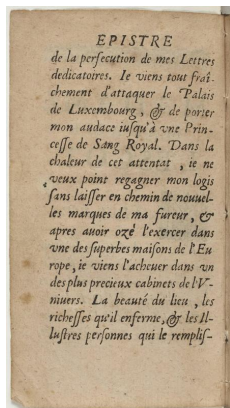 EPISTRE
de la persecution de mes Lettres
dedicatoires. Ie viens tout fraî-
chement d'attaquer le Palais
de Luxembourg, & de porter
mon audace iusqu'à vne Prin-
cesse de Sang Royal. Dans la
chaleur de cet attentat, ie ne
veux point regagner mon logis
sans laisser en chemin de nouuel-
les marques de ma fureur, &
apres auoir ozé l'exercer dans
vne des superbes maisons de l'Eu
rope, ie viens l'acheuer dans vn
des plus precieux cabinets de l'V-
niuers. La beauté du lieu, les
richesses qu'il enferme, & les Il-
lustres personnes qui le remplis-